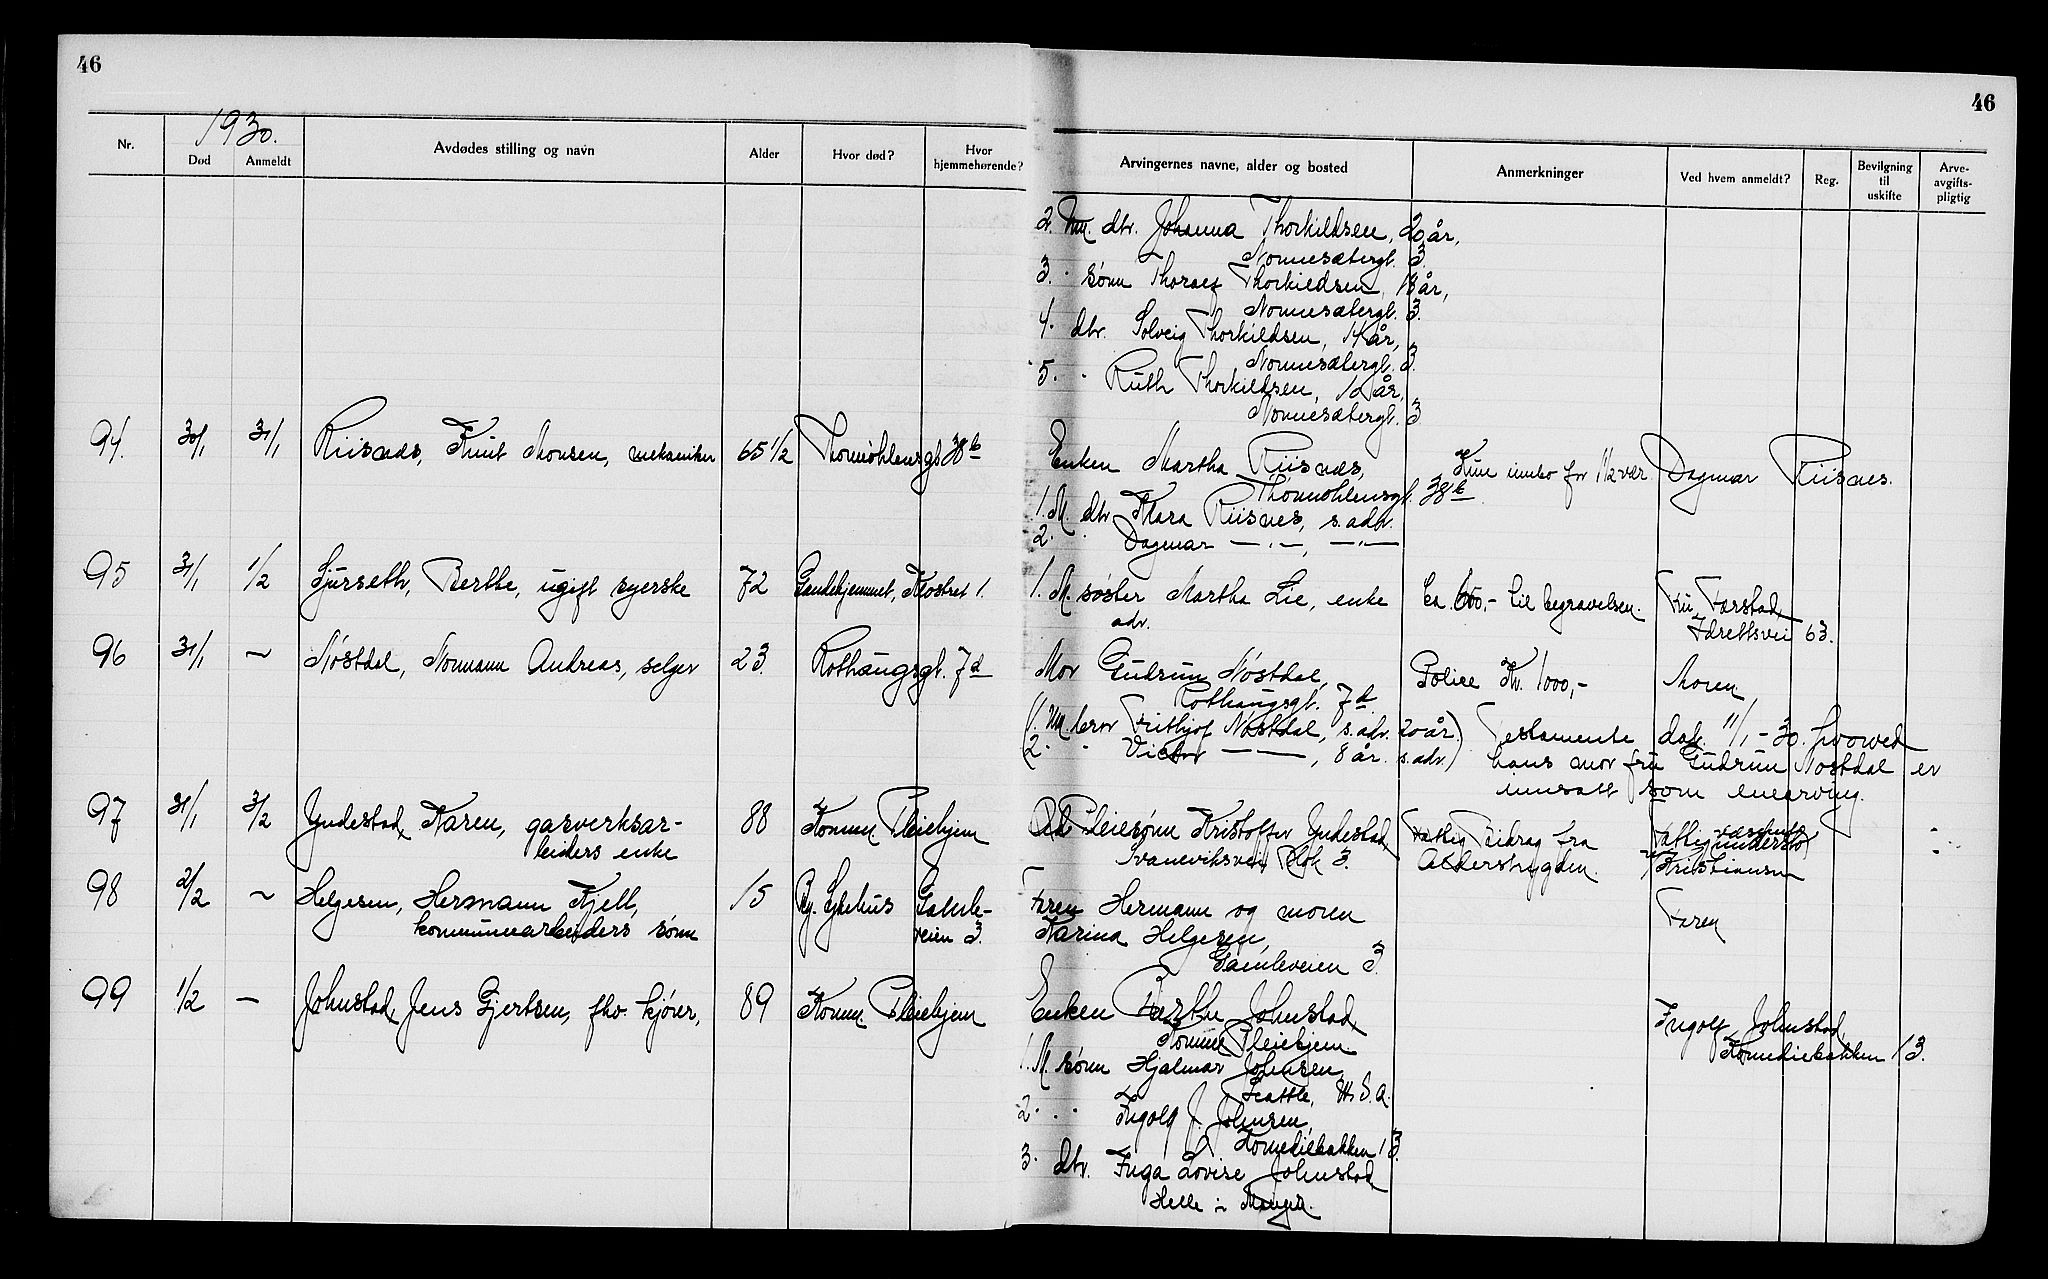 46
46
1930.
Nr.
Død
Anmeldt
Avdødes stilling og navn
Alder
Hvor død?
Hvor
hjemmehørende?
Arvingernes navne, alder og bosted
Anmerkninger
Ved hvem anmeldt?
Reg.
Bevilgning
til
uskifte
Arve-
avgifts-
pligtig
2. Um. dtr. Johanna Thorkildsen, 20 år,
Nonnesætergt. 3.
3. " sønn Thoralf Thorkildsen, 18 år,
Nonnesætergt. 3.
4. dtr. Solveig Thorkildsen, 14 år,
Nonnesætergt. 3.
5. " Ruth Thorkildsen, 12 år,
Nonnesætergt. 3
94. 30/1 31/1 Riisnæs, Knut Monsen, mekaniker 65 1/2 Thormøhlensgt 38b
Enken Martha Riisnæs,
Thormøhlensgt. 38b.
Kun innbo for Dagmar Riisnes.
1. M. dtr Klara Riisnes, s. adr.
2. " Dagmar —"—, —"—
95 31/1 1/2 Sjurseth, Berthe, ugift syerske 72 Gamlehjemmet, Klostret 1.
1. M. søster Martha Lie, enke
adr.
Ca. 600,- til begravelsen. Fru Farstad,
Idrettsvei 63.
96 31/1 ~ Nøstdal, Normann Andreas, selger 23. Rothaugsgt. 7d
Mor Gudrun Nøstdal,
Rothaugsgt. 7d.
Police Kr. 1000,- Moren
(1. Um. bror Frithjof Nøstdal, s. adr. 20 år.)
(2. " " Victor —, 8 år. s. adr.)
Testamente dat. 11/1-30. hvorved
hans mor fru Gudrun Nøstdal er
innsatt som enearving.
97 31/1 3/2 Yndestad, Karen, gasverksar-
beiders enke
88 Komm. Pleiehjem
Pleiesønn Kristoffer Yndestad,
Svaneviksvei Blok 3.
Fattig Bidrag fra
Alderstrygden.
Fattigunderst.
v/Kristiansen
98 2/2 ~ Helgesen, Hermann Kjell,
kommunearbeiders sønn
15 By. Sykehus Gamle-
veien 3.
Faren Hermann og moren
Karina Helgesen,
Gamleveien 3.
Faren
99 1/2 — Johnstad, Jens Gjertsen, fhv. kjører, 89 Komm. Pleiehjem
Enken Berthe Johnstad,
Komm. Pleiehjem.
Ingolf Johnstad,
Komediebakken 13.
1. M. sønn Hjalmar Johnsen,
Seattle, U.S.A.
2. " " Ingolf J. Johnsen,
Komediebakken 13.
3. dtr. Inga Lovise Johnstad
Helle i Manger.